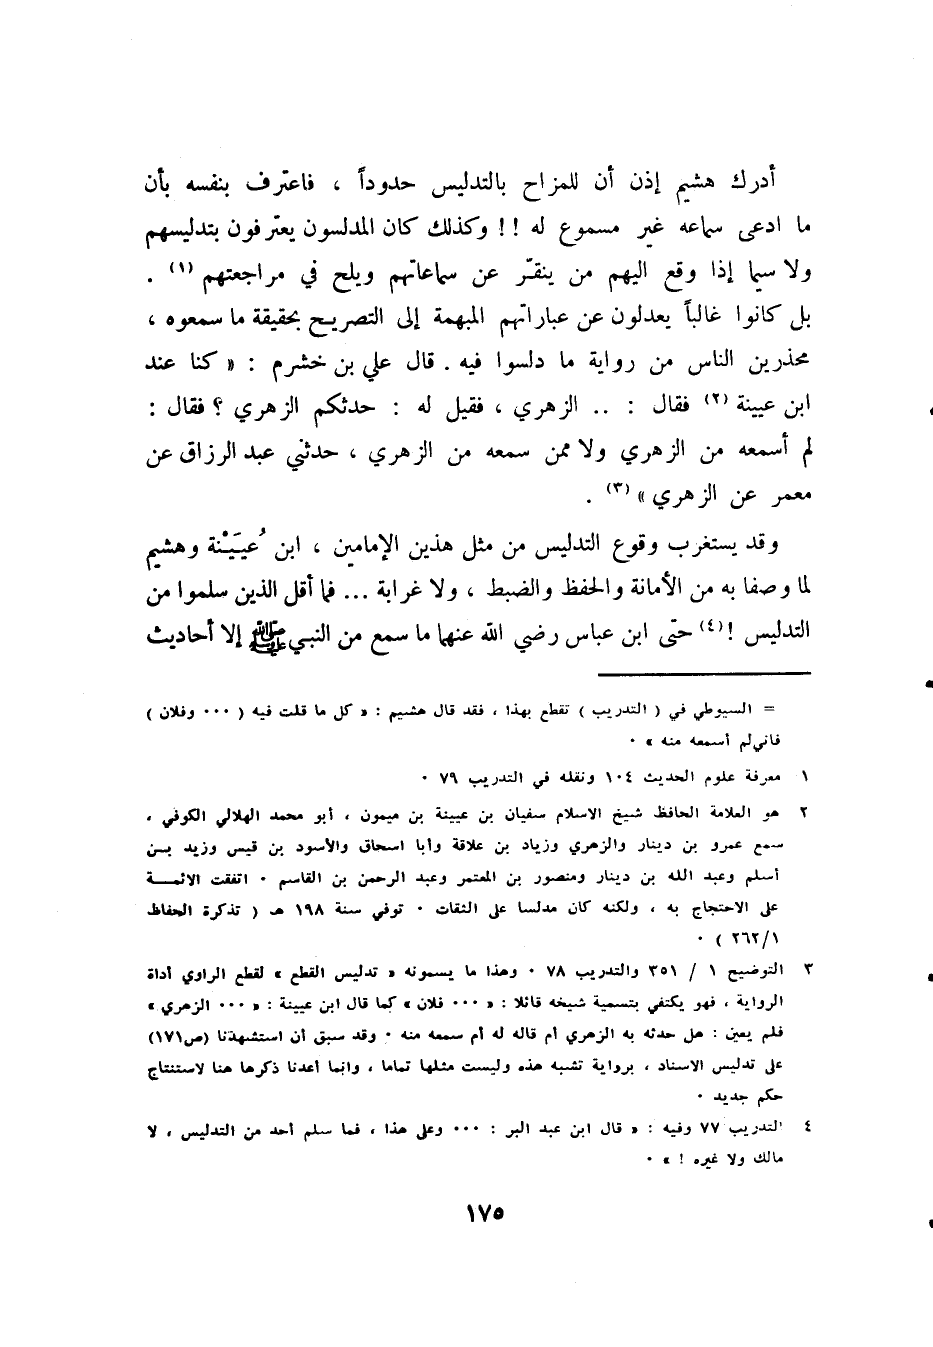 أدرك هشيم إذن أن للمزاح بالتدليس حدوداً ، فاعترف بنفسه بأن
ما ادعى سماعه غير مسموع له !! وكذلك كان المدلسون يعترفون بتدليسهم
ولا سيما إذا وقع اليهم من ينقّر عن سماعاتهم ويلح في مراجعتهم (١) .
بل كانوا غالباً يعدلون عن عباراتهم المبهمة إلى التصريح بحقيقة ما سمعوه ،
محذرين الناس من رواية ما دلسوا فيه . قال علي بن خشرم : « كنا عند
ابن عيينة (٢) فقال : .. الزهري ، فقيل له : حدثكم الزهري ؟ فقال :
لم أسمعه من الزهري ولا ممن سمعه من الزهري ، حدثني عبد الرزاق عن
معمر عن الزهري » (٣) .
وقد يستغرب وقوع التدليس من مثل هذين الإمامين ، ابن عُيَيْنة وهشيم
لما وصفا به من الأمانة والحفظ والضبط ، ولا غرابة ... فما أقل الذين سلموا من
التدليس !(٤) حتى ابن عباس رضي الله عنهما ما سمع من النبي ﷺ إلا أحاديث
= السيوطي في ( التدريب ) تقطع بهذا ، فقد قال هشيم : « كل ما قلت فيه ( ٠٠٠ وفلان )
فاني لم أسمعه منه » ٠
١ معرفة علوم الحديث ١٠٤ ونقله في التدريب ٧٩ ٠
٢ هو العلامة الحافظ شيخ الاسلام سفيان بن عيينة بن ميمون ، أبو محمد الهلالي الكوفي ،
سمع عمرو بن دينار والزهري وزياد بن علاقة وأبا اسحاق والأسود بن قيس وزيد بـن
أسلم وعبد الله بن دينار ومنصور بن المعتمر وعبد الرحمن بن القاسم ٠ اتفقت الائمـــة
على الاحتجاج به ، ولكنه كان مدلسا على الثقات ٠ توفي سنة ١٩٨ هـ ( تذكرة الحفاظ
٢٦٢/١ ) ٠
٣ التوضيح ١ / ٣٥١ والتدريب ٧٨ ٠ وهذا ما يسمونه « تدليس القطع » لقطع الراوي أداة
الرواية ، فهو يكتفي بتسمية شيخه قائلا : « ٠٠٠ فلان » كما قال ابن عيينة : « ٠٠٠ الزهري »
فلم يعين : هل حدثه به الزهري أم قاله له أم سمعه منه ٠ وقد سبق أن استشهدنا (ص١٧١)
على تدليس الاسناد ، برواية تشبه هذه وليست مثلها تماما ، وانما أعدنا ذكرها هنا لاستنتاج
حكم جديد ٠
٤ التدريب ٧٧ وفيه : « قال ابن عبد البر : ٠٠٠ وعلى هذا ، فما سلم أحد من التدليس ، لا
مالك ولا غيره ! » ٠
١٧٥